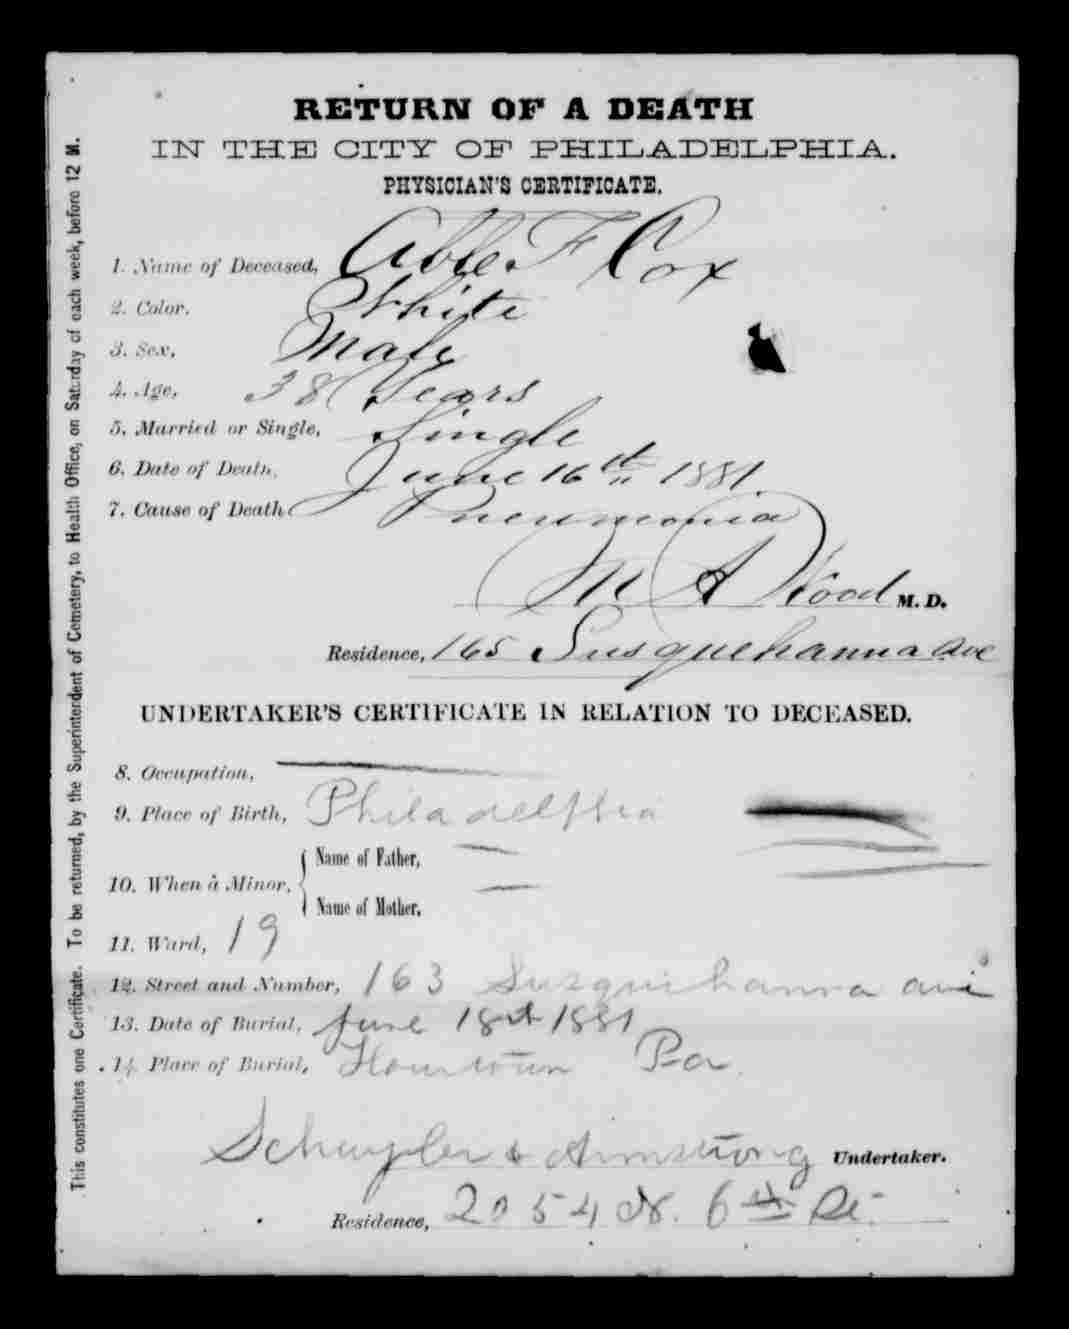 RETURN OF A DEATH
IN THE CITY OF PHILADELPHIA.
PHYSICIAN'S CERTIFICATE.
1. Name of Deceased, Able F Cox
2. Color, White
3. Sex, Male
4. Age, 38 Years
5. Married or Single, Single
6. Date of Death, June 16th 1881.
7. Cause of Death Pneumonia
M A Wood M. D.
Residence, 165 Susquehanna Ave
UNDERTAKER'S CERTIFICATE IN RELATION TO DECEASED.
8. Occupation,
9. Place of Birth, Philadelphia
Name of Father,
10. When a Minor,
Name of Mother,
11. Ward, 19
12. Street and Number, 163 Susquihanna ave
13. Date of Burial, June 18th 1881
14. Place of Burial, Pa.
Schuyler & Armstrong Undertaker.
Residence, 2054 N. 6th St.
This constitutes one Certificate. To be returned, by the Superintendent of Cemetery, to Health Office, on Saturday of each week, before 12 M.